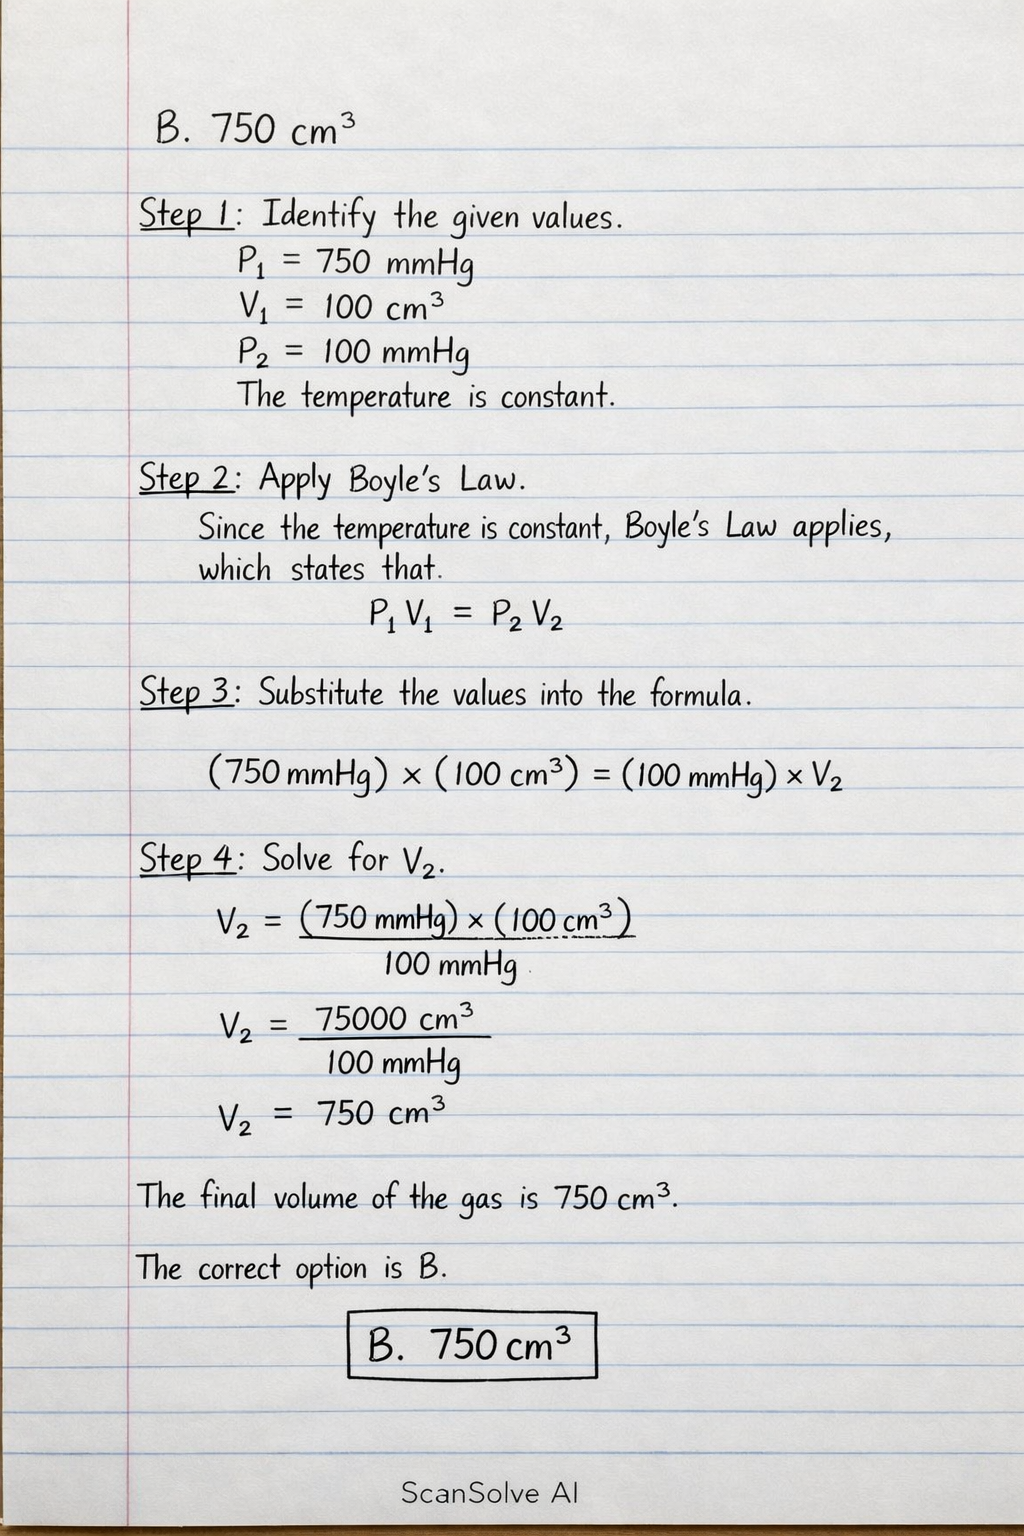 B. 750 cm³
Step 1: Identify the given values.
P₁ = 750 mmHg
V₁ = 100 cm³
P₂ = 100 mmHg
The temperature is constant.
Step 2: Apply Boyle's Law.
Since the temperature is constant, Boyle's Law applies,
which states that.
P₁ V₁ = P₂ V₂
Step 3: Substitute the values into the formula.
(750 mmHg) × (100 cm³) = (100 mmHg) × V₂
Step 4: Solve for V₂.
V₂ = (750 mmHg) × (100 cm³)
100 mmHg
V₂ = 75000 cm³
100 mmHg
V₂ = 750 cm³
The final volume of the gas is 750 cm³.
The correct option is B.
B. 750 cm³
ScanSolve AI